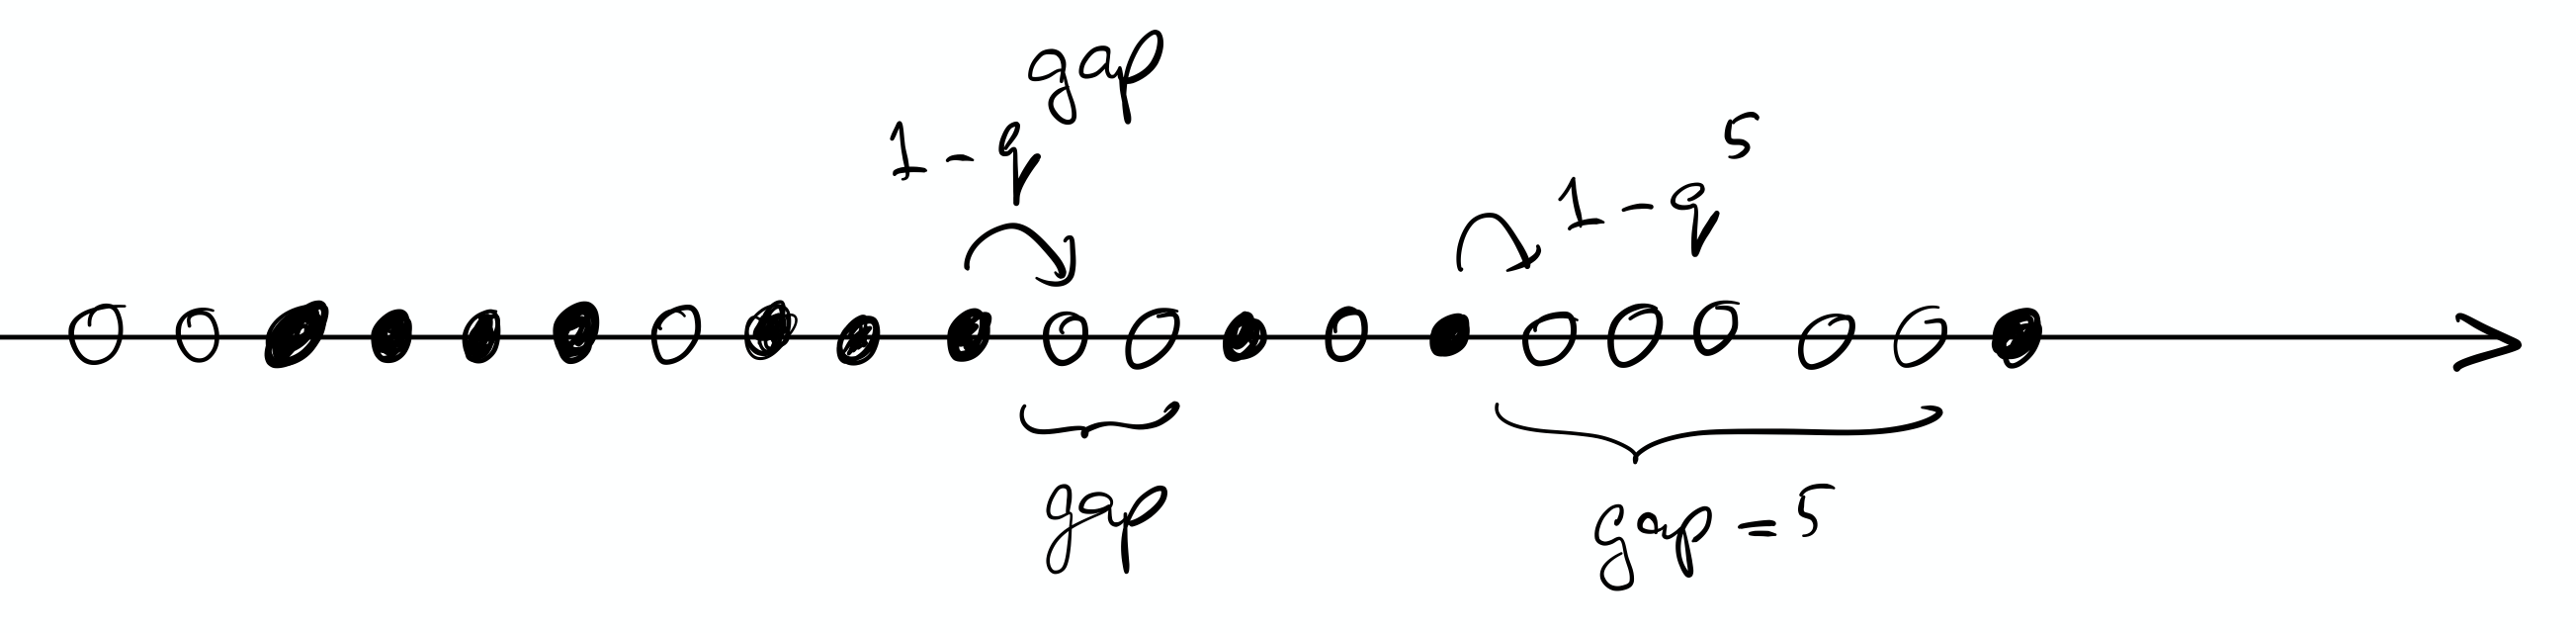 1 - q^gap
1 - q^5
gap
gap = 5